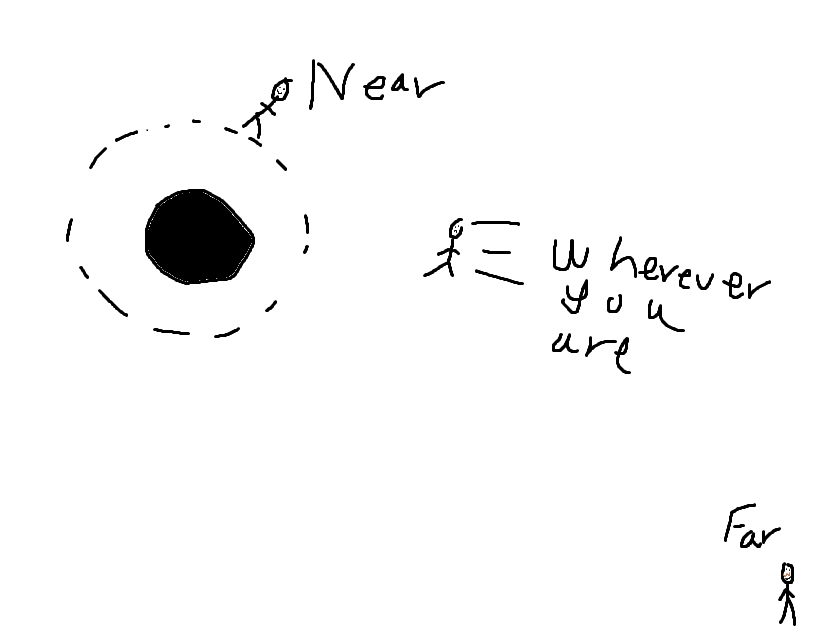 Near
Wherever
you
are
Far